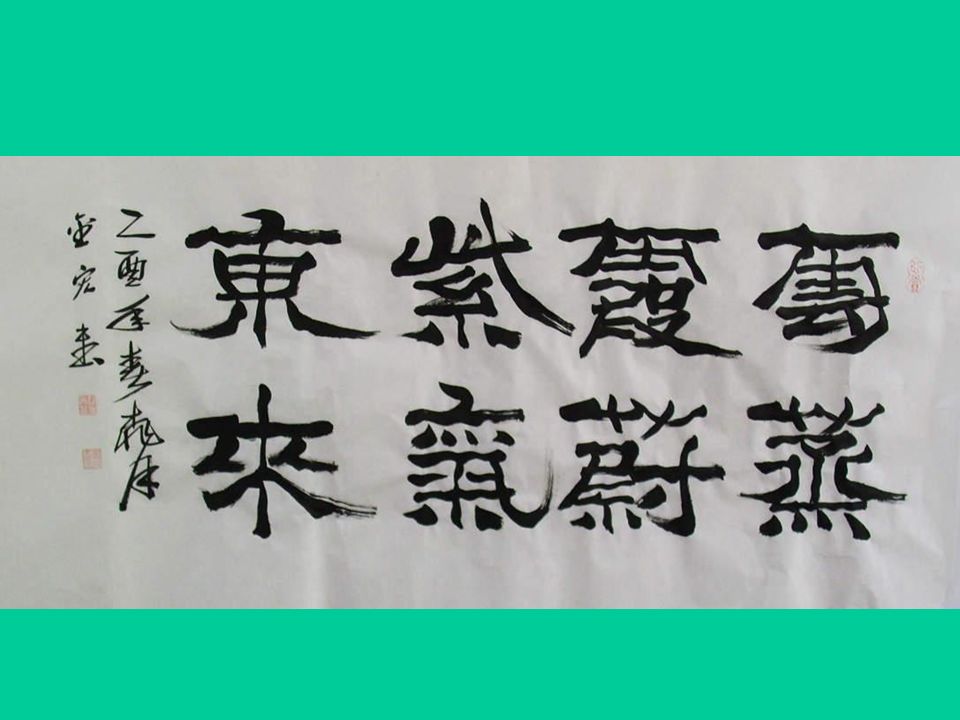 雲蒸
霞蔚
紫氣
東來
乙酉年春桃月